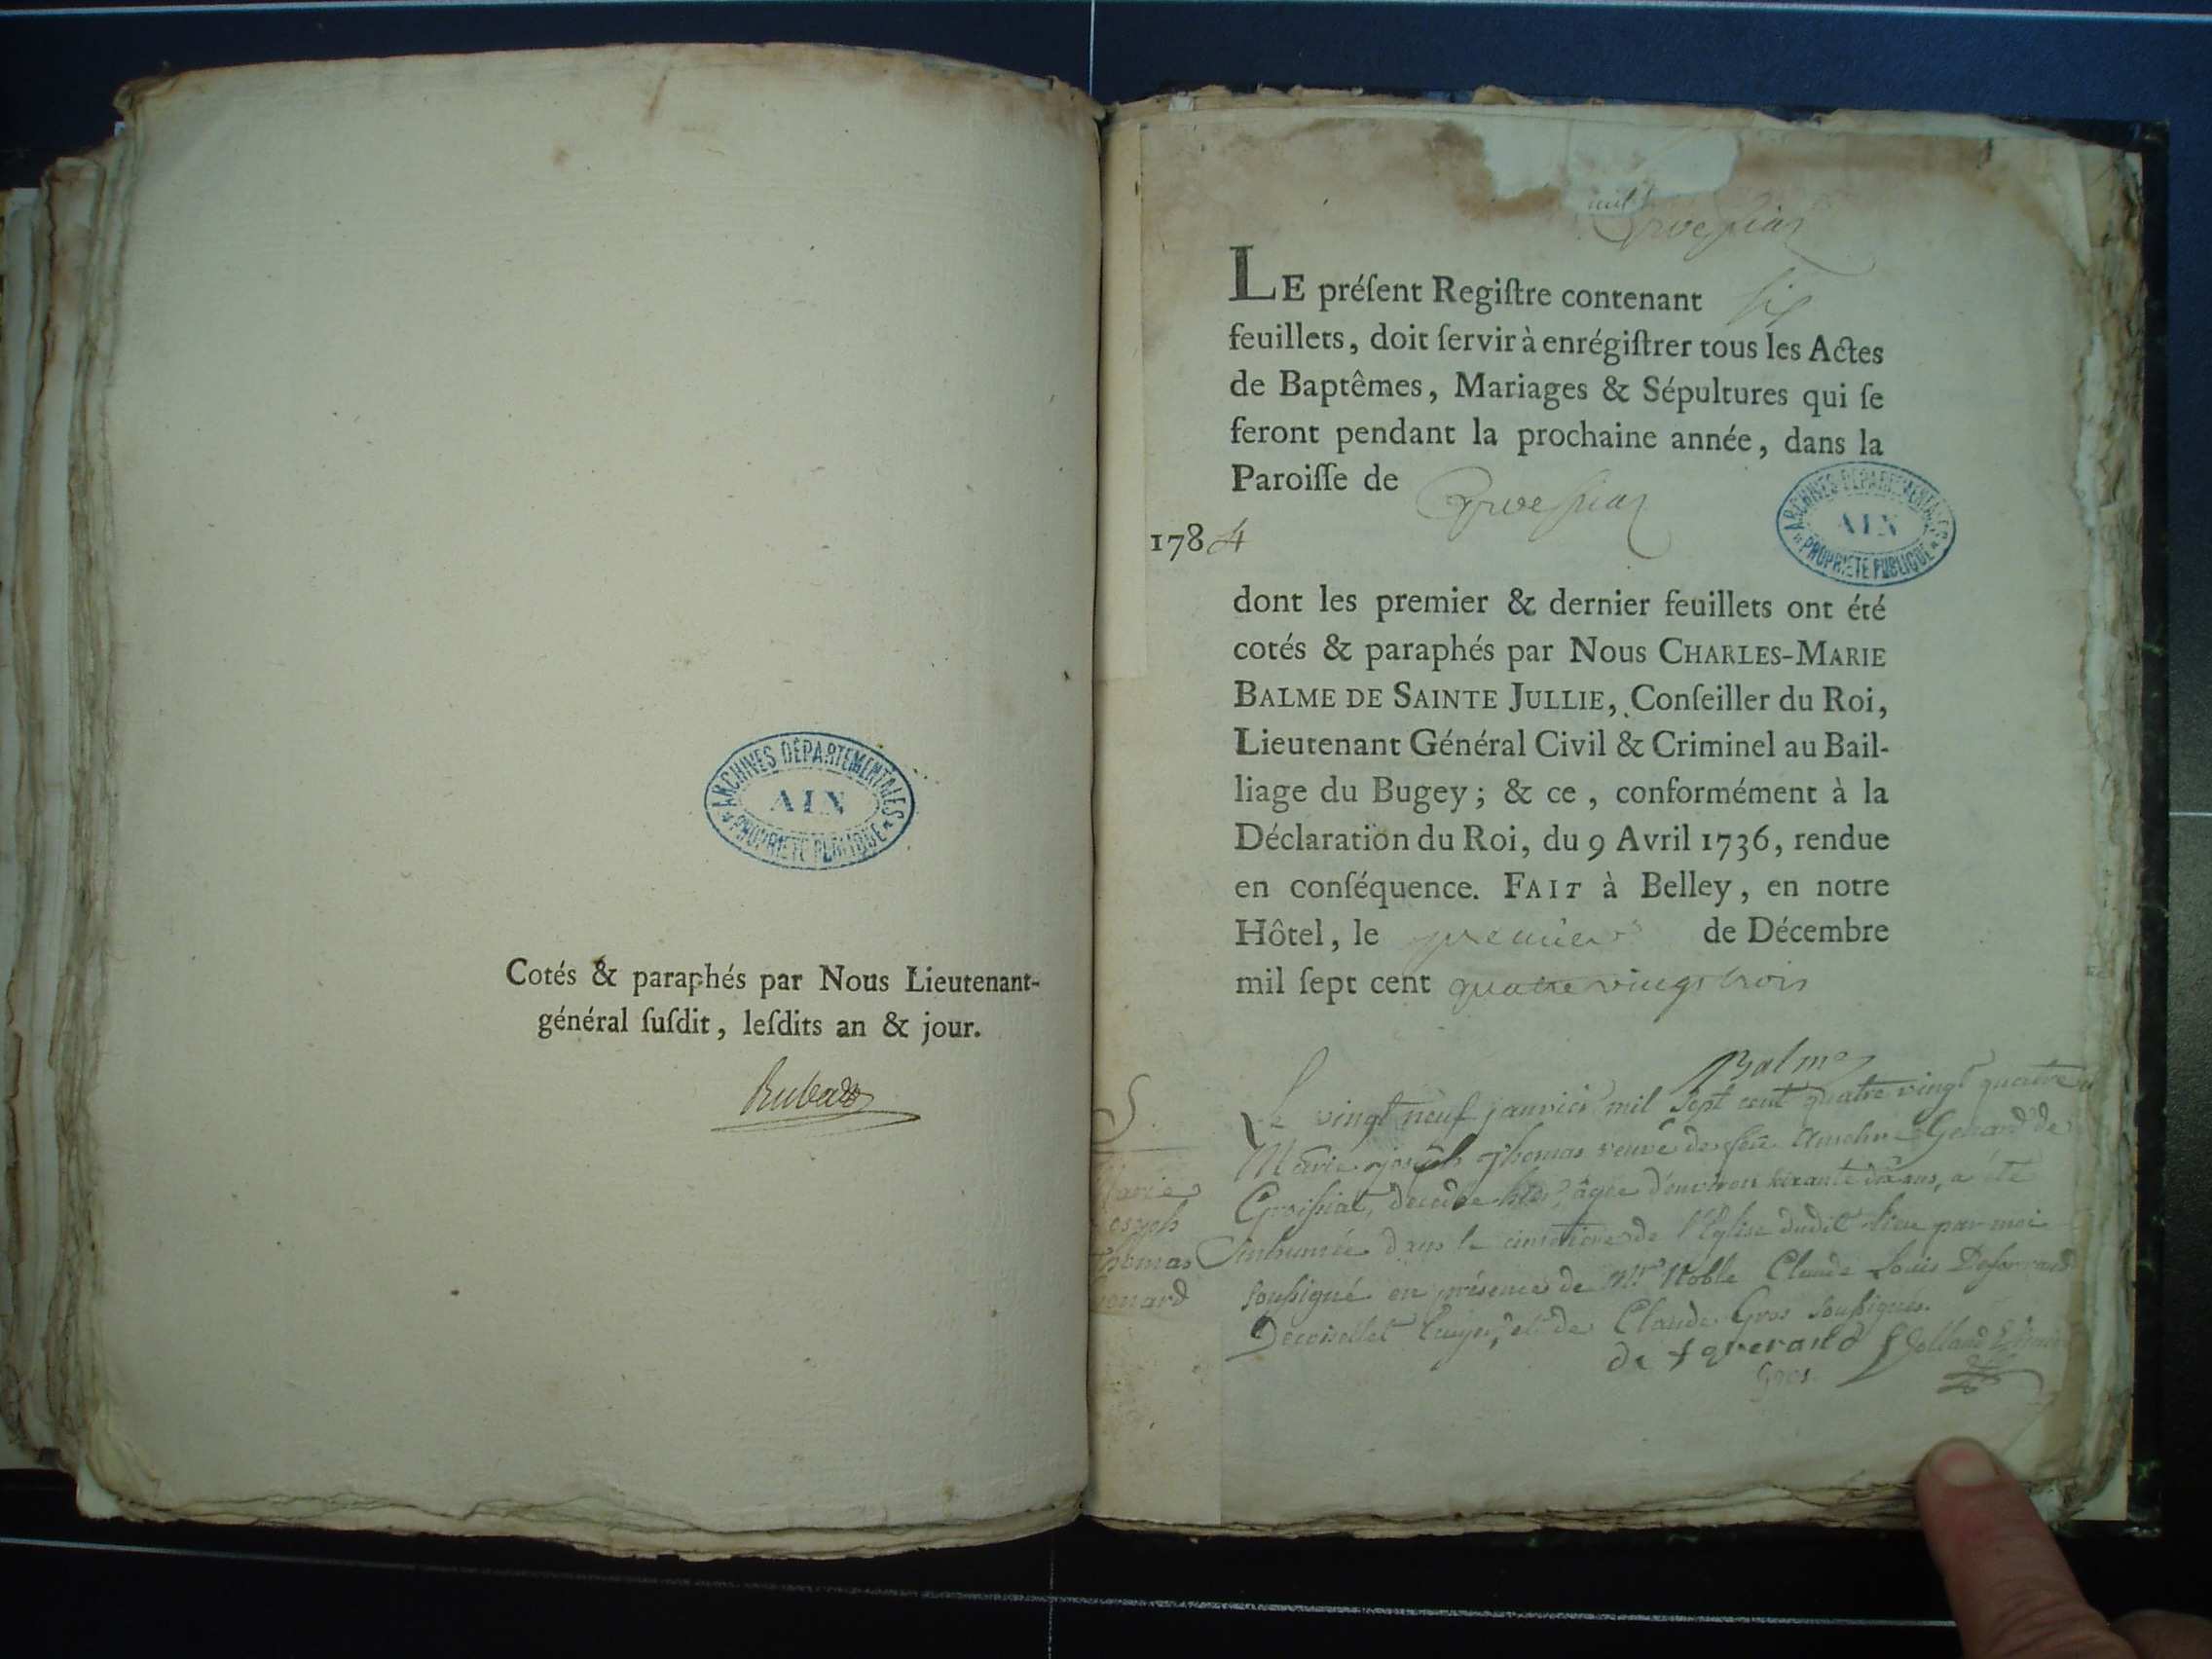 ARCHIVES DÉPARTEMENTALES
AIN
PROPRIÉTÉ PUBLIQUE
Cotés & paraphés par Nous Lieutenant-
général ſuſdit, leſdits an & jour.
LE préſent Regiſtre contenant ſix
feuillets, doit ſervir à enrégiſtrer tous les Actes
de Baptêmes, Mariages & Sépultures qui ſe
feront pendant la prochaine année, dans la
Paroiſſe de
1784
ARCHIVES DÉPARTEMENTALES
AIN
PROPRIÉTÉ PUBLIQUE
dont les premier & dernier feuillets ont été
cotés & paraphés par Nous CHARLES-MARIE
BALME DE SAINTE JULLIE, Conſeiller du Roi,
Lieutenant Général Civil & Criminel au Bail-
liage du Bugey; & ce, conformément à la
Déclaration du Roi, du 9 Avril 1736, rendue
en conſéquence. FAIT à Belley, en notre
Hôtel, le premier de Décembre
mil ſept cent quatre vingt trois
Balme
S.
Marie
Joseph
Thomas
Le vingt neuf janvier mil sept cent quatre vingt quatre
Marie joseph Thomas veuve de feu Genard de
Croissiat, décédée hier, âgée d'environ ans, a été
inhumée dans le cimetière de l'Eglise dudit lieu par moi
soussigné en présence de Noble Claude Louis
et de Claude Gros soussignés.
Gros